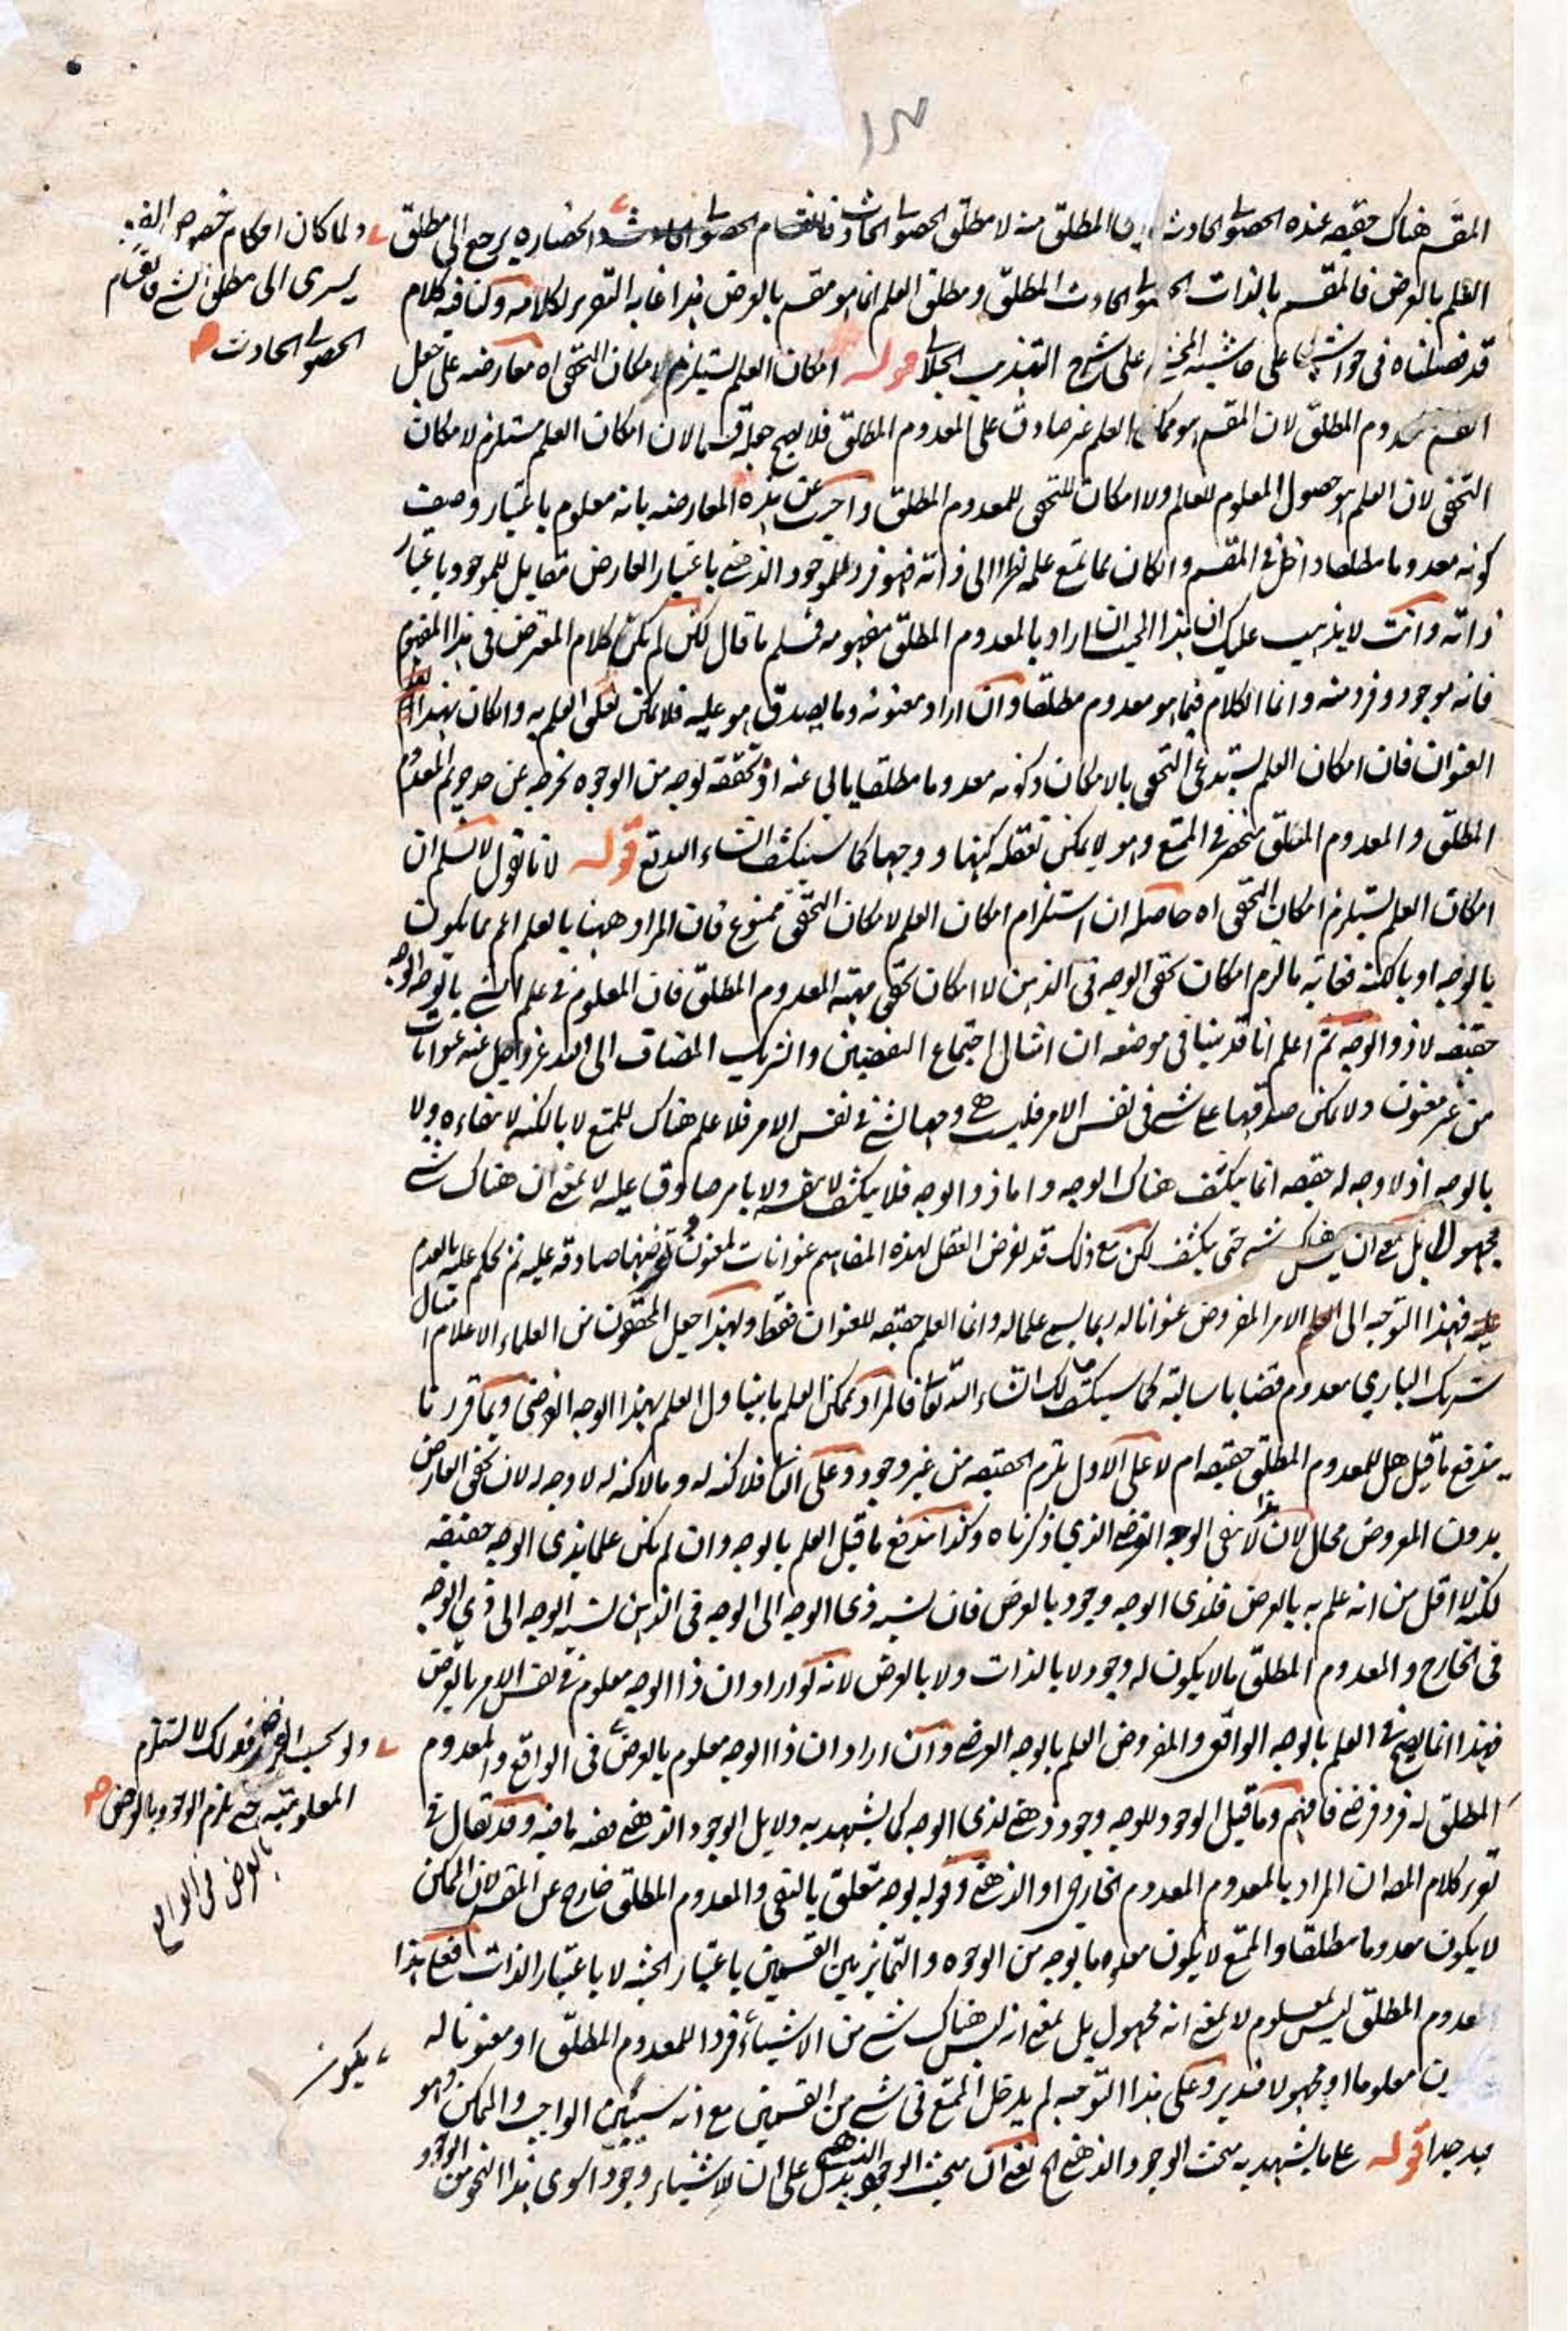 ۱۳
المقسم هناك حقيقة عنده الحصولي الحادث المطلق منه لا مطلق الحصولي الحادث فانقسام الحصولي الحادث انحصاره يرجع الى مطلق
العلم بالعرض فالمقسم بالذات الحصولي الحادث المطلق ومطلق العلم انما هو مقسم بالعرض هذا غاية التقرير لكلامه ولنا فيه كلام
قد فصلناه في حواشينا على حاشية على شرح التهذيب الجلالي قوله امكان العلم يستلزم امكان التحقق اه معارضة على جعل
المعدوم المطلق لان المقسم هو ممكن العلم غير صادق على المعدوم المطلق فلا يصح جعله قسما لان امكان العلم مستلزم لامكان
التحقق لان العلم هو حصول المعلوم للعالم ولا امكان للتحقق للمعدوم المطلق واجيب عن هذه المعارضة بانه معلوم باعتبار وصف
كونه معدوما مطلقا داخل في المقسم وان كان مما يمتنع علمه نظرا الى ذاته فهو فرد للموجود الذهني باعتبار العارض مقابل للموجود باعتبار
ذاته وانت لا يذهب عليك ان هذا المجيب ان اراد بالمعدوم المطلق مفهومه فسلم ما قال لكن لم يكن كلام المعترض في هذا المفهوم
فانه موجود وفرد منه وانما الكلام فيما هو معدوم مطلقا وان اراد معنونه وما يصدق هو عليه فلا يمكن تعلق العلم به وان كان بهذا
العنوان فان امكان العلم يستدعي التحقق بالامكان وكونه معدوما مطلقا يابى عنه اذ تحققه بوجه من الوجوه يخرجه عن المعدوم
المطلق والمعدوم المطلق منحصر في الممتنع وهو لا يمكن تعقله كنها ووجها كما سينكشف ان شاء الله تعالى قوله لانا نقول لا نسلم ان
امكان العلم يستلزم امكان التحقق اه حاصله ان استلزام امكان العلم لامكان التحقق ممنوع فان المراد ههنا بالعلم اعم مما يكون
بالوجه او بالكنه فغاية ما لزم امكان تحقق الوجه في الذهن لا امكان تحقق مهية المعدوم المطلق فان المعلوم في علم الشيء بالوجه الوجه
حقيقة لا ذو الوجه ثم اعلم انا قد بينا في موضعه ان امثال اجتماع النقيضين والشريك المضاف الى الله عز وجل عنه عنوانات
من غير معنون ولا يمكن صدقها على شيء في نفس الامر فليست هي وجها لشيء في نفس الامر فلا علم هناك للممتنع لا بالكنه لانتفاءه ولا
بالوجه اذ لا وجه له حقيقة انما ينكشف هناك الوجه واما ذو الوجه فلا ينكشف لا بنفسه ولا بامر صادق عليه لا بمعنى ان هناك شيء
مجهول بل بمعنى ان ليس هناك شيء حتى ينكشف لكن مع ذلك قد يفرض العقل لهذه المفاهيم عنوانات لمعنون ويفرضها صادقة عليه ثم يحكم عليه بالعدم
فهذا التوجه الى الامر المفروض عنوانا له ربما يسمى علما له وانما العلم حقيقة للعنوان فقط ولهذا جعل المحققون من العلماء الاعلام امثال
شريك الباري معدوم قضايا سالبة كما سينكشف لك ان شاء الله تعالى فالمراد بممكن العلم ما يتناول العلم بهذا الوجه الفرضي وبما قررنا
يندفع ما قيل هل للمعدوم المطلق حقيقة ام لا على الاول يلزم الحقيقة من غير وجود وعلى الثاني فلا كنه له وما لا كنه له لا وجه له لان تحقق العارض
بدون المعروض محال لان هذا لا ينفي الوجه الفرضي الذي ذكرناه وكذا يندفع ما قيل العلم بالوجه وان لم يكن علما بذي الوجه حقيقة
لكنه لا اقل من انه علم به بالعرض فلذي الوجه وجود بالعرض فان نسبة ذي الوجه الى الوجه في الذهن نسبة الوجه الى ذي الوجه
في الخارج والمعدوم المطلق ما لا يكون له وجود لا بالذات ولا بالعرض لانه لو اراد ان ذا الوجه معلوم في نفس الامر بالعرض
فهذا انما يصح في العلم بالوجه الواقعي والمفروض العلم بالوجه الفرضي وان اراد ان ذا الوجه معلوم بالعرض في الواقع والمعدوم
المطلق له فرد فرضي فافهم وما قيل الوجود للوجه وجود ذهني لذي الوجه كما يشهد به دلائل الوجود الذهني ففيه ما فيه وقد يقال في
تقرير كلام المصـ ان المراد بالمعدوم المعدوم الخارجي او الذهني وقوله بوجه متعلق بالنفي والمعدوم المطلق خارج عن المقسم لان الممكن
لا يكون معدوما مطلقا والممتنع لا يكون معدوما بوجه من الوجوه والتمايز بين القسمين باعتبار الحيثية لا باعتبار الذات فعلى هذا
المعدوم المطلق ليس بمعلوم لا بمعنى انه مجهول بل بمعنى انه ليس هناك شيء من الاشياء فردا للمعدوم المطلق او معنونا له
معلوما او مجهولا فتدبر وعلى هذا التوجيه لم يدخل الممتنع في شيء من القسمين مع انه سيبين الواجب والممكن وهو
بعيد جدا قوله على ما يشهد به مبحث الوجود الذهني اه يعني ان مبحث الوجود الذهني يدل على ان للاشياء وجود سوى هذا النحو من الوجود
ولما كان احكام خصوص الفرد
يسري الى مطلق الشيء فانقسام
الحصولي الحادث
ولو بحسب الفرض فذلك لا يستلزم
المعلومية حتى يلزم الوجود بالعرض
بالعرض في الواقع
يكون